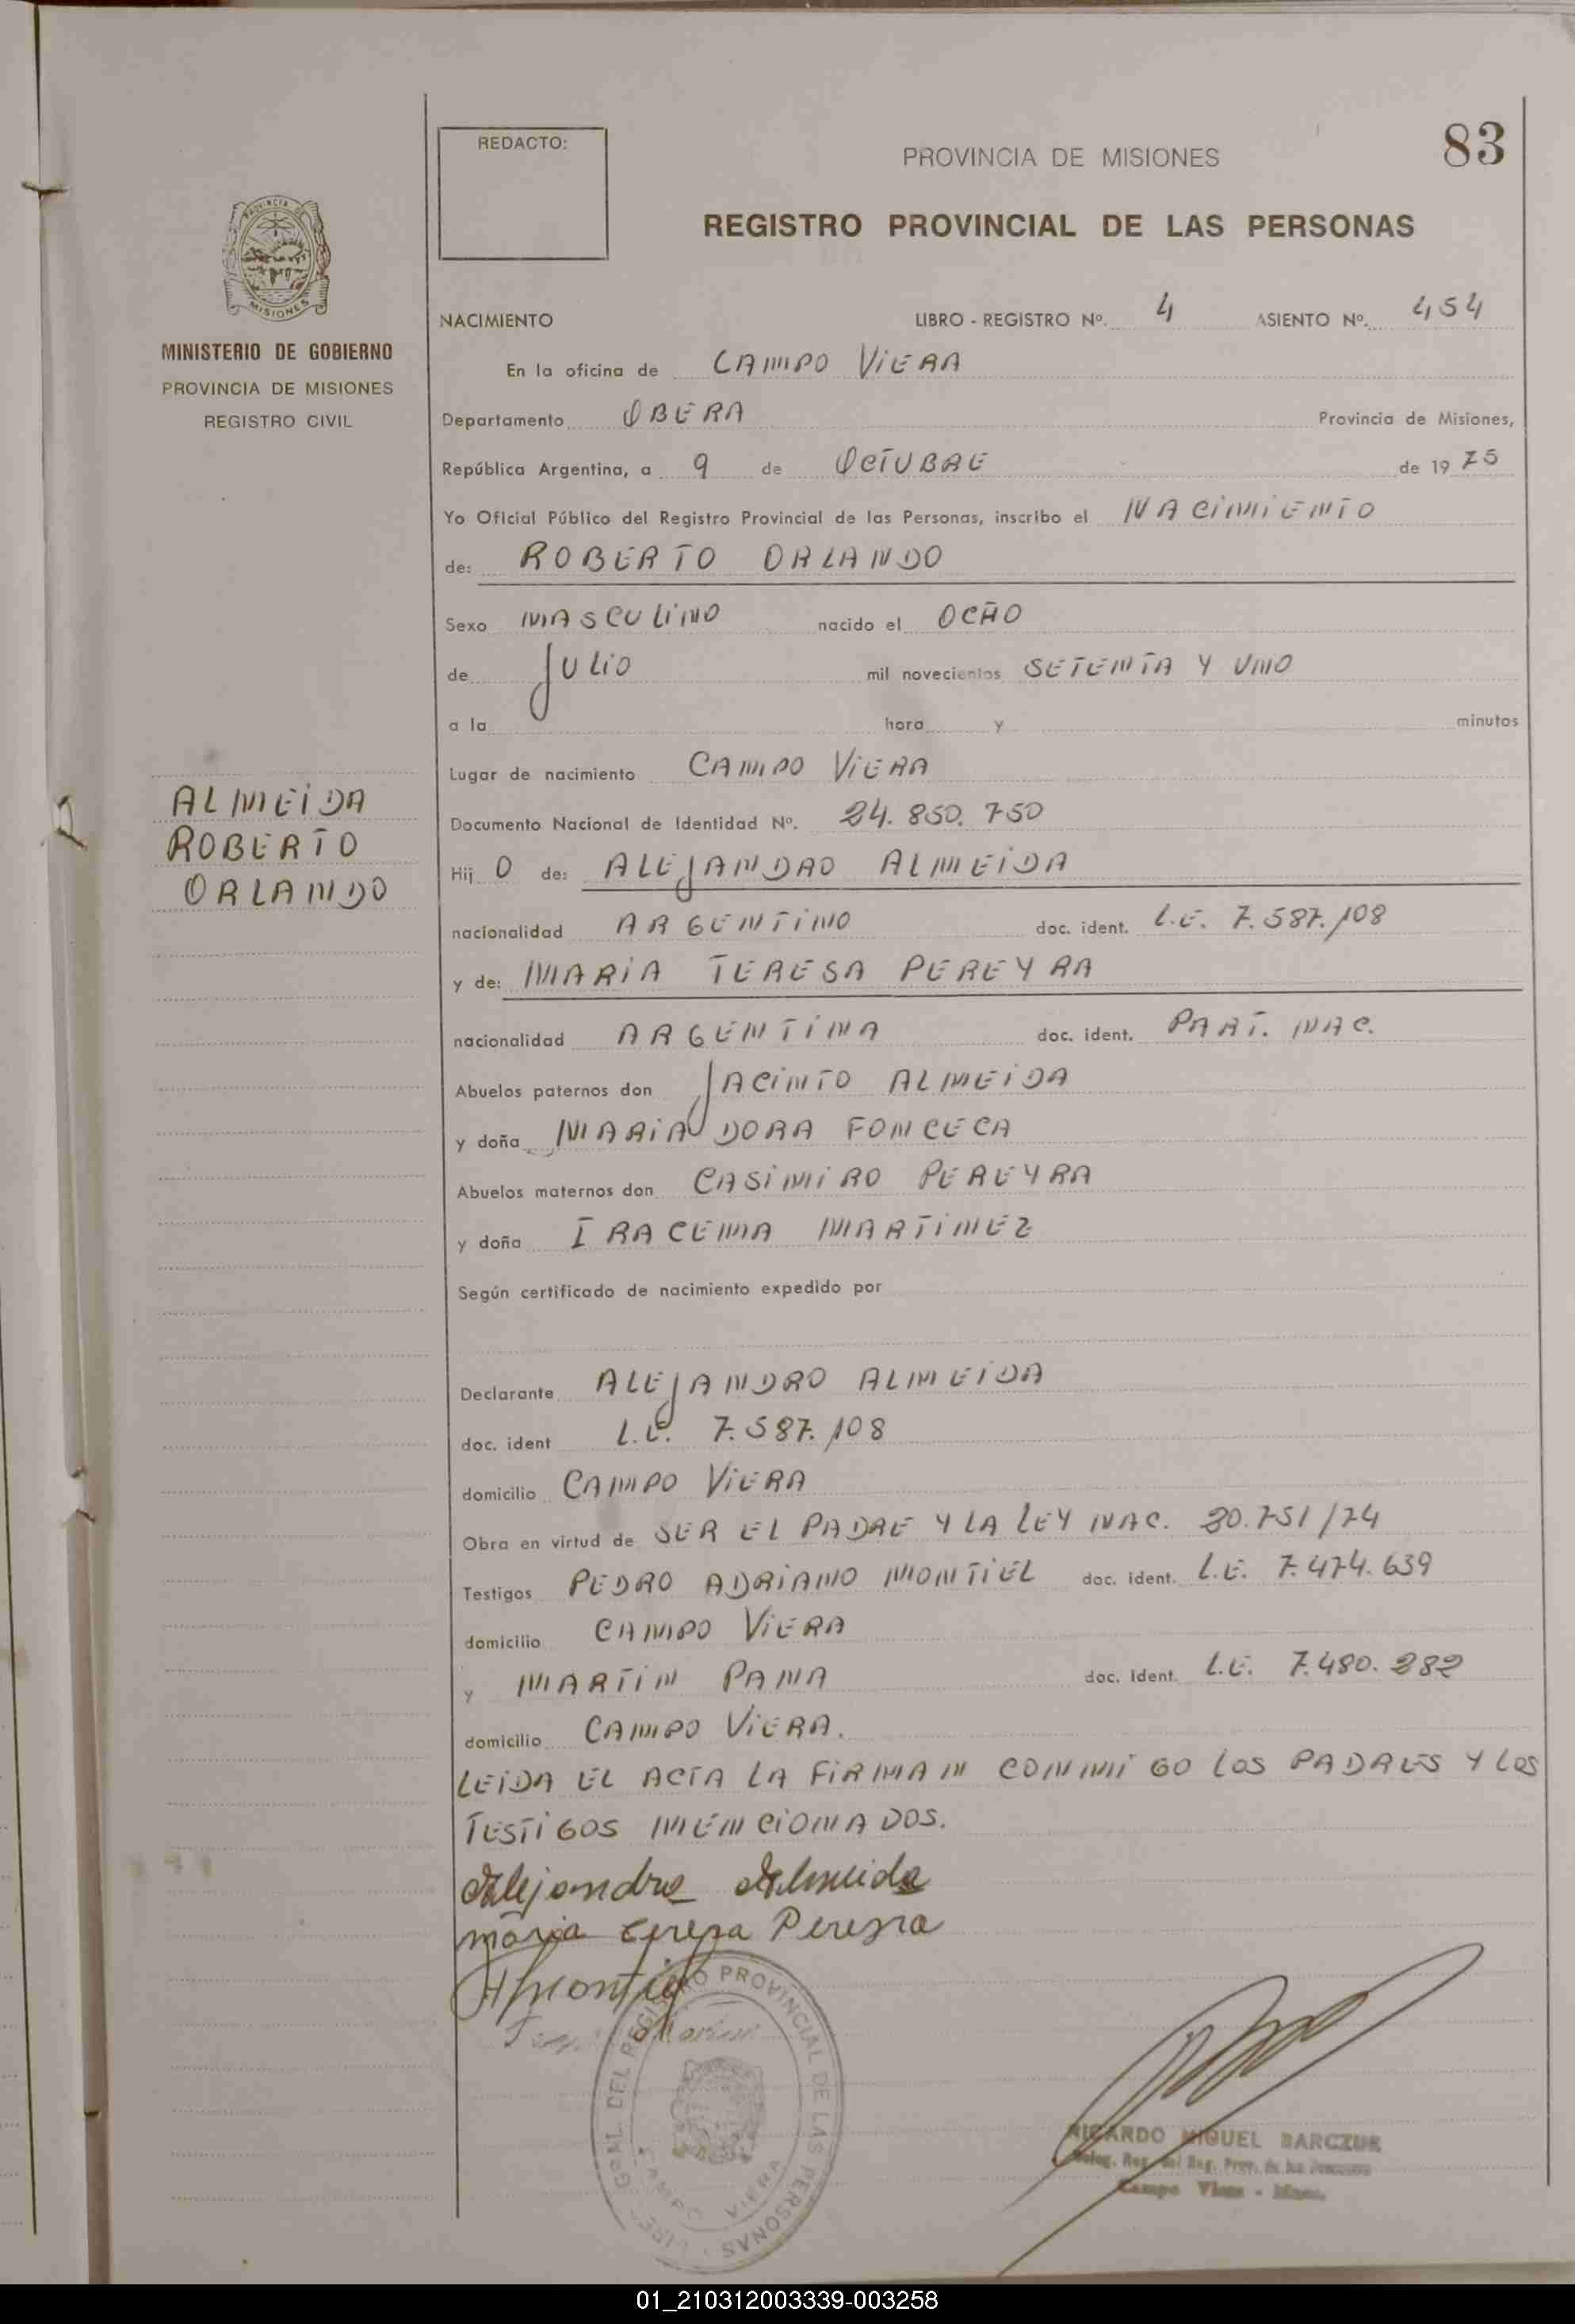 REDACTO:
PROVINCIA DE MISIONES
83
REGISTRO PROVINCIAL DE LAS PERSONAS
PROVINCIA DE
MISIONES
MINISTERIO DE GOBIERNO
PROVINCIA DE MISIONES
REGISTRO CIVIL
NACIMIENTO LIBRO - REGISTRO Nº. 4 ASIENTO Nº. 454
En la oficina de CAMPO VIERA
Departamento OBERA Provincia de Misiones,
República Argentina, a 9 de OCTUBRE de 19 75
Yo Oficial Público del Registro Provincial de las Personas, inscribo el NACIMIENTO
de: ROBERTO ORLANDO
Sexo MASCULINO nacido el OCHO
de JULIO mil novecientos SETENTA Y UNO
a la hora y minutos
Lugar de nacimiento CAMPO VIERA
ALMEIDA
ROBERTO
ORLANDO
Documento Nacional de Identidad Nº. 24.850.750
Hij O de: ALEJANDRO ALMEIDA
nacionalidad ARGENTINO doc. ident. L.E. 7.587.108
y de: MARIA TERESA PEREYRA
nacionalidad ARGENTINA doc. ident. PART. NAC.
Abuelos paternos don JACINTO ALMEIDA
y doña MARIA DORA FONCECA
Abuelos maternos don CASIMIRO PEREYRA
y doña IRACEMA MARTINEZ
Según certificado de nacimiento expedido por
Declarante ALEJANDRO ALMEIDA
doc. ident L.E. 7.587.108
domicilio CAMPO VIERA
Obra en virtud de SER EL PADRE Y LA LEY NAC. 20.751/74
Testigos PEDRO ADRIANO MONTIEL doc. ident. L.E. 7.474.639
domicilio CAMPO VIERA
y MARTIN PANA doc. ident. L.E. 7.480.282
domicilio CAMPO VIERA.
LEIDA EL ACTA LA FIRMAN CONMIGO LOS PADRES Y LOS
TESTIGOS MENCIONADOS.
Alejandro Almeida
maria teresa Pereyra
AMontiel
GRAL. DEL REGISTRO PROVINCIAL DE LAS PERSONAS
CAMPO VIERA
RICARDO MIGUEL BARCZUK
Deleg. Reg. del Reg. Prov. de las Personas
Campo Viera - Mnes.
01_210312003339-003258